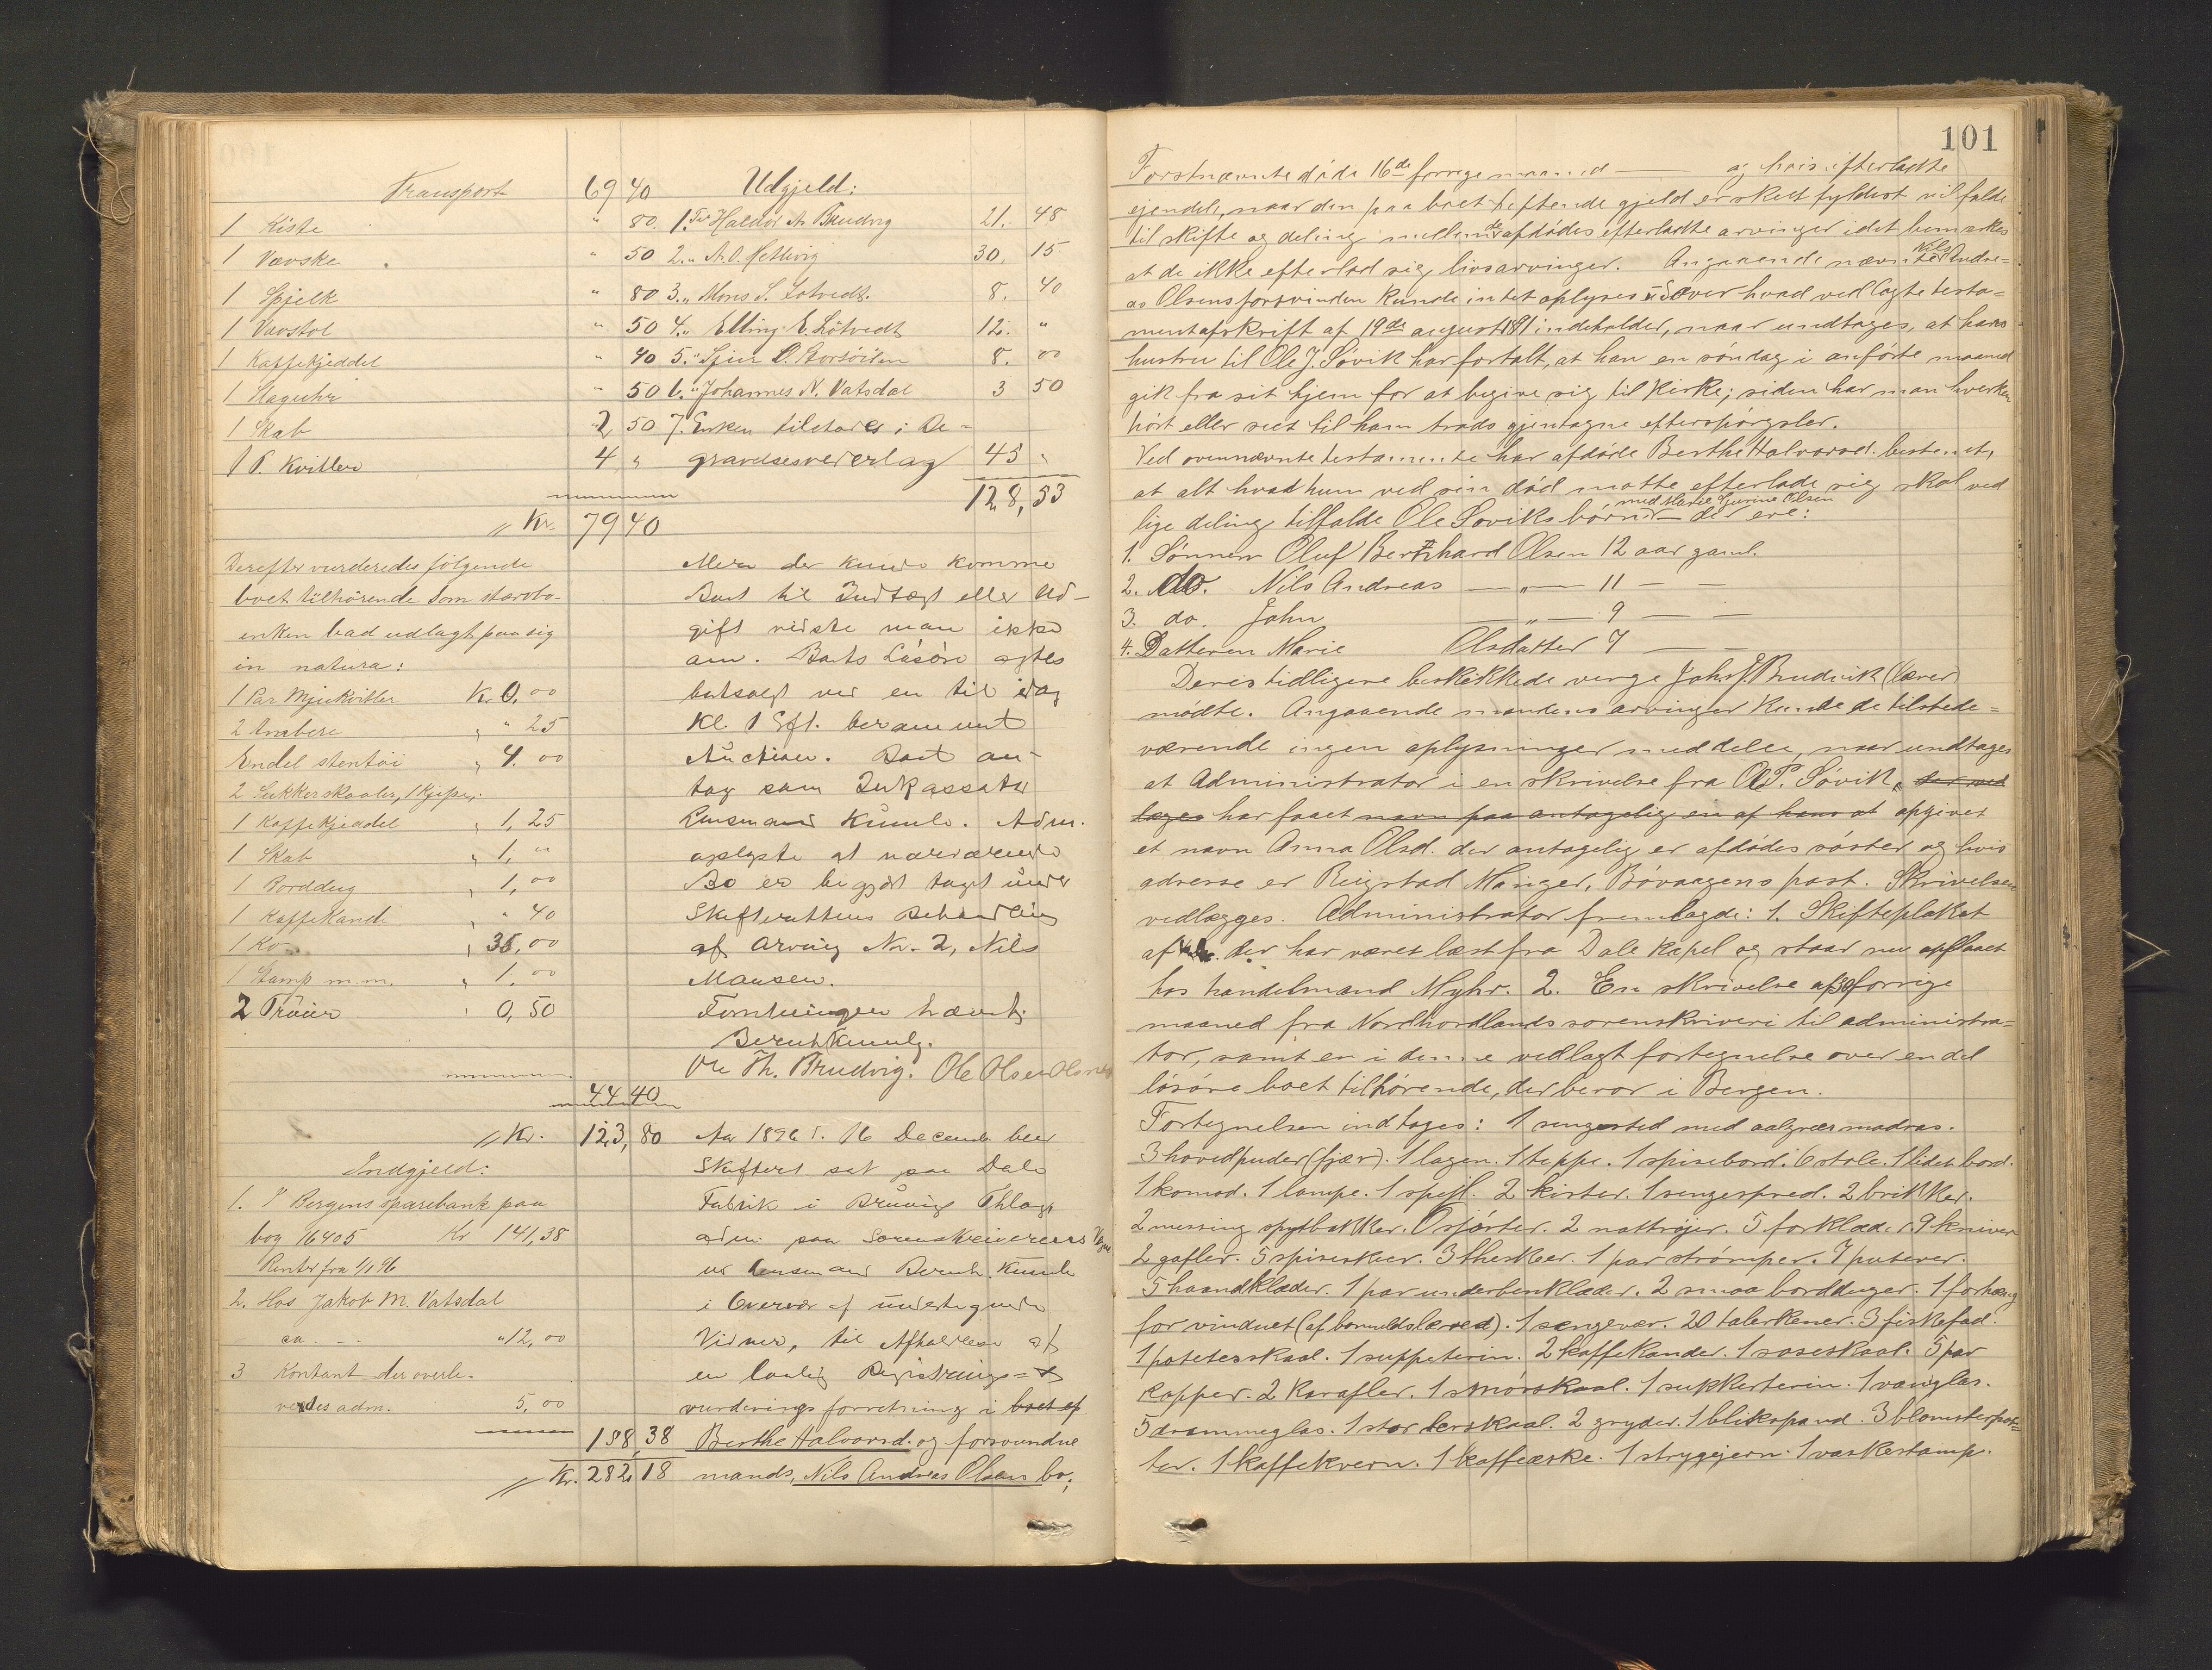 Transport 69 40
1 Kiste " 80
1 Vævske " 50
1 Spjelk " 80
1 Vævstol " 50
1 Kaffekjeddel " 40
1 Slaguhr " 50
1 Skab 2 50
1 P. Kvitler 4 "
Kr. 79 40
Derefter vurderedes følgende
boet tilhörende som stervbo-
enken bad udlagt paa sig
in natura:
1 Par Mjukvitler Kr. 0,00
2 Ambere " 25
Endel stentöi " 4.00
2 Sukkerskaaler, 1
1 Kaffekjeddel " 1,25
1 Skab " 1, "
1 Borddug " 1,00
1 Kaffekande " " 40
1 Ko " 35,00
1 Stamp m.m. " 1.00
2 Tröier " 0,50
44 40
Kr. 123,80
Indgjeld:
1. I Bergens sparebank paa
bog 16405 Kr 141,38
Renter fra 1/1 96
2. Hos Jakob M. Vatsdal
ca - - - " 12,00
3 Kontant der overle-
verdes adm. 5,00
158,38
Kr. 282,18
Udgjeld:
1. Til Haldor A. Brudvig 21. 48
2. " A. O. Hettvig 30, 15
3. " Mons S. Lotvedt. 8. 40
4. " Elling E. Lötvedt 12. "
5. " 8. 00
6. " Johannes N. Vatsdal 3 50
7. Enken tilstaaes i Be-
gravelsesvederlag 45 "
128,53
Mere der kunde komme
Boet til Indtægt eller Ud-
gift vidste man ikke
om. Boets Løsøre agtes
bortsolgt ved en til idag
Kl. 1 Eft. berammet
Auction. Boet an-
tog som Inkassator
Lensmand Kumle. Adm.
oplyste at nærværende
Bo er begjært taget under
Skifterettens Behandling
af Arving No. 2, Nils
Monsen.
Forretningen hævet.
Bernt Kumle.
Ole Th. Brudvig. Ole Olsen
Aar 1896 d. 16 Decemb. blev
Skifteret sat paa Dale
Fabrik i Bruvigs Thlag
adm. paa Sorenskriverens Vegne
ved Lensmand Bernt Kumle
i Overvær af undertegnede
Vidner, til Afholdelse af
en lovlig Registrerings- &
vurderingsforretning i boet ef.
Berthe Halvorsd. og forsvundne
mands, Nils Andreas Olsens bo,
101
Forstnævnte döde 16de forrige maaned — og hvis efterladte
ejendele, naar den paa boet heftende gjeld er skeet fyldest vil falde
til skifte og deling mellem de afdödes efterladte arvinger idet bemærkes
at de ikke efterlod sig livsarvinger. Angaaende nævnte Nils Andre-
as Olsens forsvinden kunde intet oplyses ud over hvad vedlagte testa-
mentafskrift af 19de august 1891 indeholder, naar undtages, at hans
hustru til Ole J. Sövik har fortalt, at han en söndag i anförte maaned
gik fra sit hjem for at begive sig til Kirke; siden har man hverken
hört eller seet til ham trods gjentagne efterspörgsler.
Ved ovennævnte testamente har afdöde Berthe Halvorsd. bestemt,
at alt hvad hun ved sin död maatte efterlade sig skal ved
lige deling tilfalde Ole Soviks börn med Marie Gurine Olsen der ere:
1. Sönnen Oluf Bernhard Olsen 12 aar gaml.
2. do. Nils Andreas — " — 11 — —
3. do. John — " — 9 — —
4. Datteren Marie Olsdatter 7 — —
Deres tidligere beskikkede verge John J. Brudvik (lærer)
mödte. Angaaende mandens arvinger kunde de tilstede-
værende ingen oplysninger meddele, naar undtages
at Administrator i en skrivelse fra Ole P. Sövik, der ved
lægges har faaet navn paa antagelig en af hans at opgivet
et navn Anna Olsd. der antagelig er afdödes söster og hvis
adresse er Reigstad Manger, Bövaagens post. Skrivelsen
vedlægges. Administrator fremlagde: 1. Skifteplakat
af der har været læst fra Dale kapel og staar nu opslaaet
hos handelmand Myhr. 2. En skrivelse af 30 forrige
maaned fra Nordhordlands sorenskriveri til administra-
tor, samt en i denne vedlagt fortegnelse over endel
lösöre boet tilhörende, der beror i Bergen.
Fortegnelsen indtages: 1 sengested med aalgræsmadras.
3 hovedpuder (fjær). 1 lagen. 1 teppe. 1 spisebord. 6 stole. 1 lidet bord.
1 komod. 1 lampe. 1 spejl. 2 kister. 1 sengespred. 2 brikker.
2 messing spytbakker. 6 sjörter. 2 nattröjer. 5 forklæder. 9 kniver
2 gafler. 5 spiseskeer. 3 theskeer. 1 par strömper. 7 putevar.
5 haandklæder. 1 par underbenklæder. 2 smaa borddüger. 1 forhæng
for vinduet (af bomuldslærred). 1 sengevær. 20 talerkener. 3 fiskefad.
1 potetesskaal. 1 suppeterin. 2 kaffekander. 1 soseskaal. 5 par
kopper. 2 karafler. 1 smörskaal. 1 sukkerterin. 1 vanglas.
5 drammeglas. 1 stor lerskaal. 2 gryder. 1 blikspand. 3 blomsterpot-
ter. 1 kaffekvern. 1 kaffeæske. 1 strygejern. 1 vaskestamp.